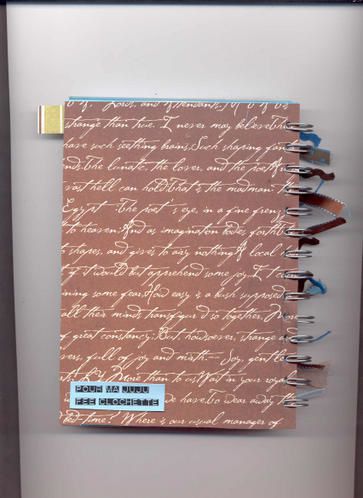 strange than true. I never may believe th
have such seething brains, Such shaping fan
nds. The lunatic, the lover, and the poet A
vast hell can hold: that's the madman: th
Egypt The poet's eye, in a fine frenz
to heaven; And as imagination bodies forth th
shapes, and gives to airy nothing A local h
if it would but apprehend some joy, I t com
ning some fear, How easy is a bush supposed
all their minds transfigur'd so together, More
of great constancy; But, howsoever, strange a
vers, full of joy and mirth— Joy, gentle
More than to us Wait in your royal
POUR MA JUJU
FEE CLOCHETTE
we have, To wear away the
bed-time? Where is our usual manager of